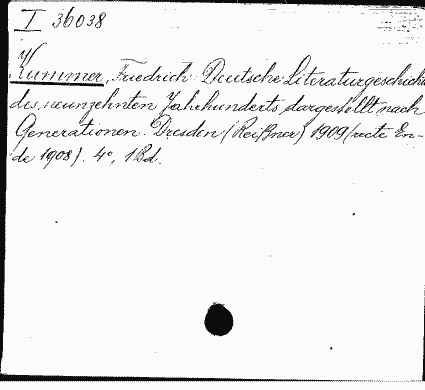 I 36038
Kummer, Friedrich: Deutsche Literaturgeschichte
des neunzehnten Jahrhunderts, dargestellt nach
Generationen. Dresden (Reißner) 1909 (recte En-
de 1908). 4°, 1 Bd.